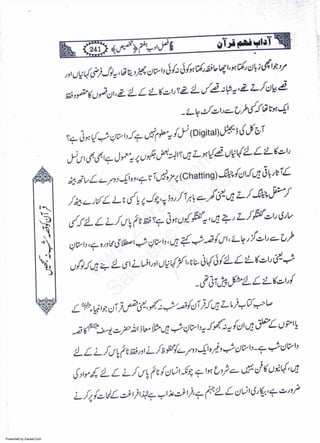 آداب فہم قرآن
﴿تخصیص﴾
241
مرد جو اچھی زبان رکھتا ہو، اچھا حافظہ رکھتا ہو کوئی نہ کوئی داستان چھیڑ دیتا تھا، یہ لوگ فرضی کہانیاں اور
قصے بیان کرتے تھے، یہ شبانہ قصے کس لئے تھے؟ رات کاٹنے کے لئے تھے، ان قصوں کا مقصود فقط
ایک ہوتا تھا کہ کسی طرح سے رات کٹ جائے۔
آج کل کی ڈیجیٹل (Digital) نسل کو یہ معلوم نہیں ہے کہ داستان شب کیا ہوتی ہے؟
رات کاٹنے کے لئے کہانیاں قصے کیا ہوتے ہیں؟ البتہ بعض جگہوں پر یہ معمول ہے ابھی بھی اس نسل
کے آثار باقی ہیں ان کو چیٹنگ (Chatting) پر مزہ نہیں آتا ہے، وہ ایک دوسرے کے ساتھ بیٹھ
کر مستقل چیٹنگ کرتے ہیں یعنی گھر سے باہر آ کر روڈ پر، چوک پر یا کسی پلی کے کنارے بیٹھ کر
ساری رات گفتگو کرتے رہتے ہیں، یہ گفتگو کیوں ہوتی ہے؟ فقط ٹائم پاس کرنے کے لئے کہ کسی
طرح سے رات گزر جائے، اس کو قصہ شب کہتے ہیں، داستان شب، اصطلاحی محاورہ ہے، داستان
شب یعنی رات کاٹنے کے لئے کوئی کہانی سنانا، اکثر کہانیاں اور افسانے اسی لئے بنے ہیں کہ لوگوں
کو رات کاٹنے کے لئے مشکل پیش آتی تھی۔
صاحب کتاب فرماتے ہیں کہ قرآن کو قصہ شب نہ سمجھو، یعنی قصص قرآن جو انبیاء کے
یا امتوں کے متعلق ہیں ان کو یہ نہ سمجھو کہ یہ داستان شب ہیں مثلاً معاذ اللہ حضرت یوسف کا قصہ
داستان شب ہے۔ داستان شب وغیرہ ایک دوسرے کو محظوظ کرنے اور فقط ٹائم پاس کرنے کے لئے
ہیں، کہانیوں کا فن یہیں سے شروع ہوا ہے چونکہ انسان کو ٹائم پاس کرنے کے لئے کچھ مواد کی
ضرورت ہے، بیکاری انسان کے لئے جہنم ہے، فراغت عذاب ہے لہذا فراغت کے لمحات کو پر کرنے
قرآن کو قصہ شب نہ سمجھیں
Presented by Ziaraat.Com